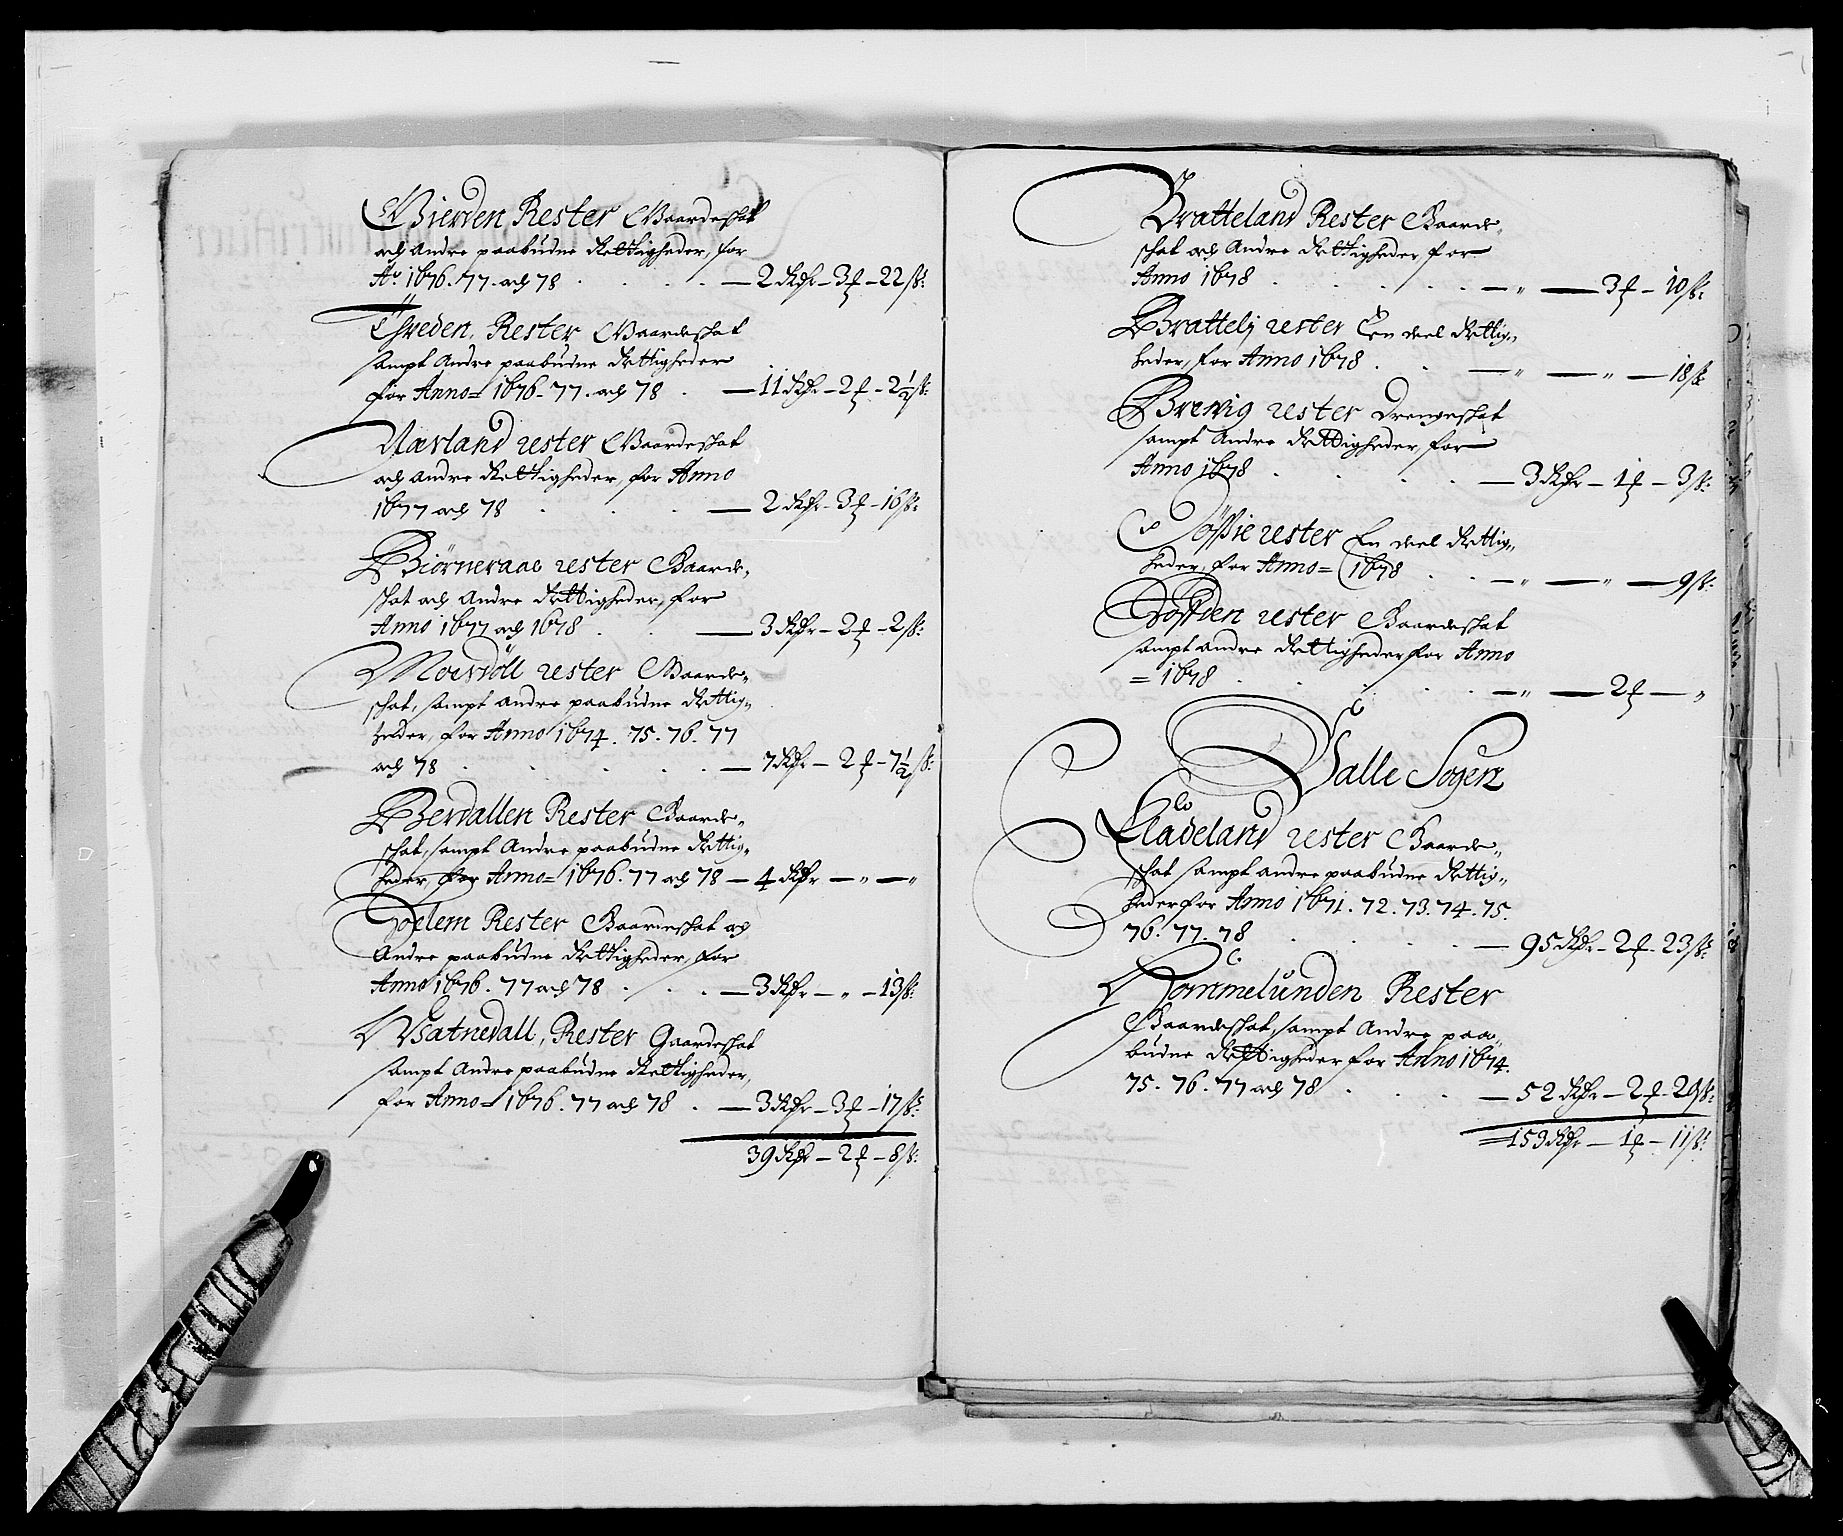 Gierden Rester Gaardeschat
och Andre paabudne Rettigheder, for
Aō. 1676. 77. och 78 . . . — 2 Rdr — 3 ƒ — 22 ſs:
Rester Gaardeschat
sampt Andre paabudne Rettigheder
for Anno= 1676. 77. och 78 . — 11 Rdr — 2 ƒ — 2½ ſs:
Næsland rester Gaardeschat
och Andre Rettigheder, for Anno
1677 och 78 . . . — 2 Rdr — 3 ƒ — 16 ſs:
Biörneraae rester Gaarde„
schat och Andre Rettigheder, for
Anno 1677 och 1678 . . — 3 Rdr — 2 ƒ — 2 ſs:
rester Gaarde„
schat, sampt andre paabudne Rettig„
heder, for Anno 1674. 75. 76. 77
och 78 . . . . — 7 Rdr — 2 ƒ — 7½ ſs:
Berdallen Rester Gaarde„
schat, sampt Andre paabudne Rettig„
heder, for Anno= 1676. 77 och 78 — 4 Rdr — „ — „
Rester Gaardeschat och
Andre paabudne Rettigheder, for
Anno 1676. 77 och 78 . . . — 3 Rdr — „ — 13 ſs:
Vatnedall, Rester Gaardeschat
sampt Andre paabudne Rettigheder,
for Anno= 1676. 77 och 78 . — 3 Rdr — 3 ƒ — 17 ſs:
39 Rdr — 2 ƒ — 8 ſs:
Bratteland Rester Gaarde„
schat och Andre Rettigheder, for
Anno 1678 . . . . — „ — 3 ƒ — 10 ſs:
Brattelj rester Een deel Rettig„
heder, for Anno 1678 . . — „ — „ — 18 ſs:
Brevig rester Drengeschat
sampt Andre Rettigheder, for
Anno 1678 . . . . — 3 Rdr — 1 ƒ — 3 ſs:
rester En deel Rettig„
heder, for Anno= 1678 . . — „ — „ — 9 ſs:
rester Gaardeschat
sampt andre Rettigheder for Anno
= 1678 . . . . — „ — 2 ƒ — „
Valle Sogen
rester Gaarde„
schat sampt andre paabudne Rettig„
heder for Anno 1671. 72. 73. 74. 75.
76. 77. 78 . . . . — 95 Rdr — 2 ƒ — 23 ſs:
Rommelunden Rester
Gaardeschat, sampt Andre paa„
budne Rettigheder for Anno 1674.
75. 76. 77 och 78 . . . — 52 Rdr — 2 ƒ — 20 ſs:
=153 Rdr — 1 ƒ — 11 ſs: